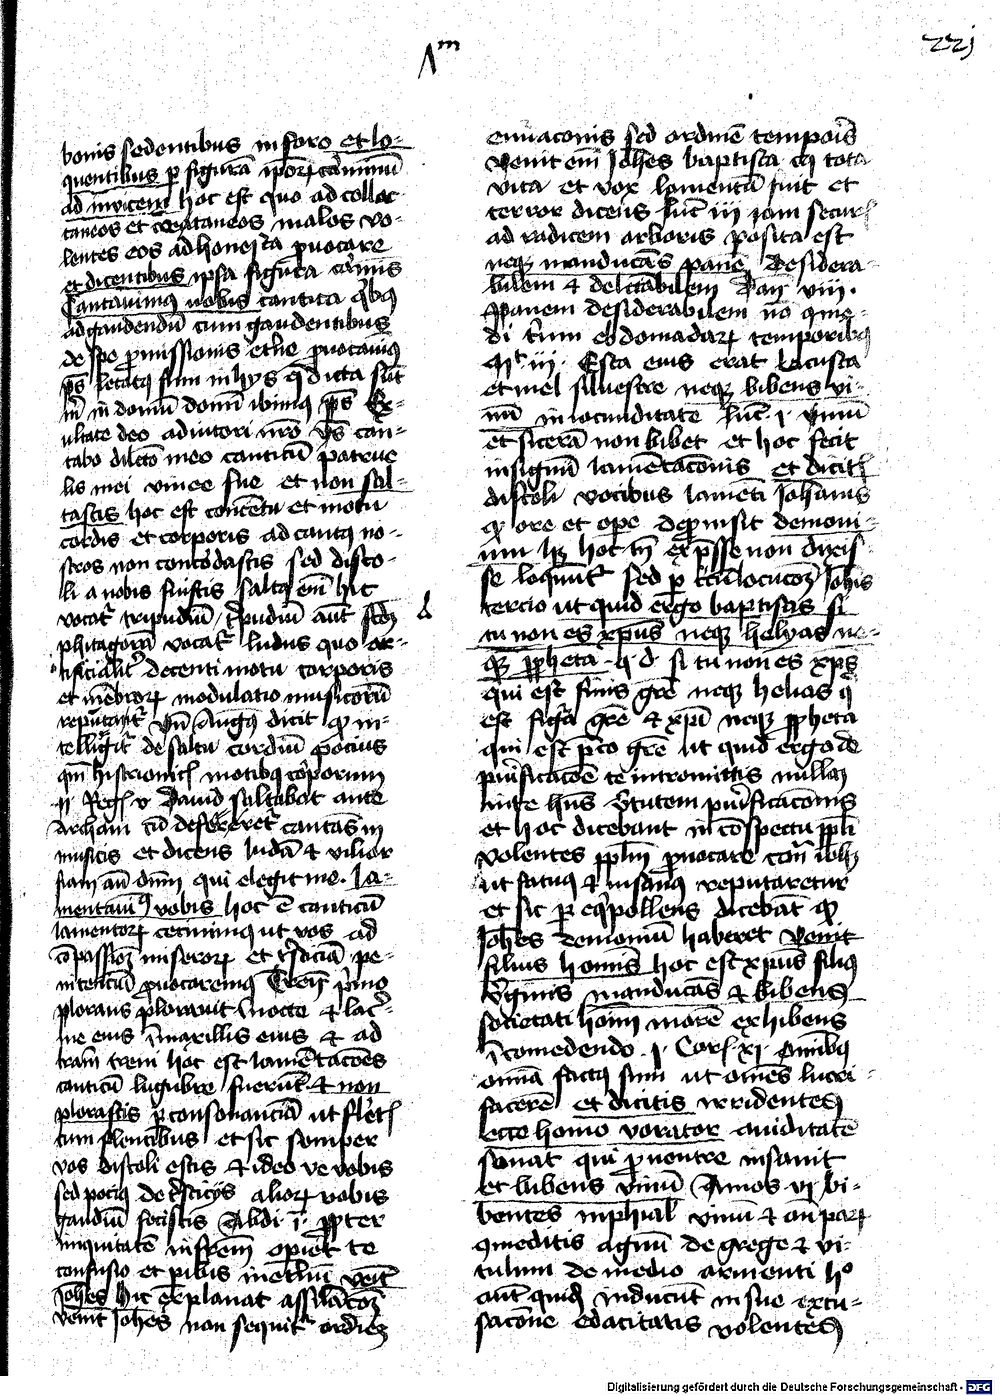 Λm
22j
bonis sedentibus in foro et lo-
quentibus p figurā ipoꝝ cōminiū
ad invicem hoc est quo ad collac
taneos et coetaneos malos vo-
lentes eos ad honesta pvocare
et dicentibus ipsa figura cōmis
Cantavimꝰ vobis cantica qͥbꝰ
ad gaudendū cum gaudentibus
de spe pmissionis et le pvocaviꝰ
ps letatꝰ sum in hys q dicta sūt
m̄ in domū domī ibimꝰ ps Ex-
ultate deo adiutori nrō ys can-
tabo dilcō meo canticū patrue
lis mei vinee sue et non sal-
tastis hoc est concētu et motu
cordis et corporis ad cantꝰ no-
stros non concordastis sed disco-
li a nobis fuistis saltꝰ em̄ hic
vocat tripudiū tpudiū aut scdꝫ
phitagorā vocat ludus quo ar-
tificialit decenti motu corporis
et mēbroꝝ modulatio musicorū
reputat vn Augꝰ dicit qp in-
telligit de saltu cordiū pocius
qm histrionicꝭ motibꝰ corporum
ij Regꝭ v David saltabat ante
archam cū deferret cantās in
musicis et dicens ludā et vilior
fiam an dnm qui elegit me. La-
mentaviꝰ vobis hoc ē canticū
lamentoꝝ cecinimꝰ ut vos ad
cōpassioꝫ miseroꝝ et tsticiā pe-
nitenciū pvocaremꝰ Treñ pmo
plorans ploravit ī nocte et lac-
me eius ī maxillis eius et ad
tram treni hoc est lamētacoēs
canticū lugubre fuerūt et non
plorastis p consonanciā ut fletꝭ
cum flentibus et sic semper
vos discoli estis et ideo ve vobis
sed pociꝰ de tsticijs alioꝝ vobis
gaudiū fecistis Abdi i. ppter
iniquitatē in frem opiet te
confusio et pibis in etnū venit
Johes hic explanat assilacoꝫ
venit Johēs non sequit ordineꝫ
enūaconis sed ordinē tempoīs
venit eni Johēs baptista cꝰ tota
vita et vox lamentū fuit et
terror dicens luc iij jam securꝭ
ad radicem arboris posita est
neqꝫ manducās panē desidera-
bilem et delctabilem Dan viij.
Panem desiderabilem nō qme-
di trium ebdomadaꝝ temporibꝰ
qt iij. Esca eius erat locusta
et mel silvestre neqꝫ bibens vi-
nū in iocunditate luc i vinū
et sicerā non bibet et hoc fecit
in signū lamētacōnis et dicitꝭ
discoli vocibus lamēti Johānis
qp ore et ope deprmsit demoni-
um hꝫ hoc tn expsse non dixis-
se loquūt sed p ccūlocucoꝫ Johis
tercio ut quid ergo baptisas si
tu non es xpus neqꝫ helyas ne-
qꝫ ppheta q d si tu non es xps
qui est finis gre neqꝫ helias q
est figa gre et xpi neqꝫ ppheta
qui est pco gre ut quid ergo de
puificacoē te intromittis nullaꝫ
inte hns vtutem puificacōnis
et hoc dicebant in cōspectu ppli
volentes pplm pvocare contͣ ioheꝫ
ut fatuꝰ et insanꝰ reputaretur
et sic p eqpollens dicebāt qp
Johēs demoniū haberet Venit
filius hominis hoc est xpus filiꝰ
vginis manducās et bibens
societati homī morē exhibens
ī comedendo. j. Corꝭ xj omībꝰ
omnia factꝰ sum ut omēs lucri-
facerē et dicitis irridentes
ecce homo vorator aviditatē
sonat qui pventre insanit
et bibens vinū Amos vj bi-
bentes in phial vinū et an paꝝ
qmeditis agnū de grege et vi-
tulum de medio armenti ho
aut quidꝫ inducūt in sue excu-
sacone edacitatis volentes
Digitalisierung gefördert durch die Deutsche Forschungsgemeinschaft - DFG